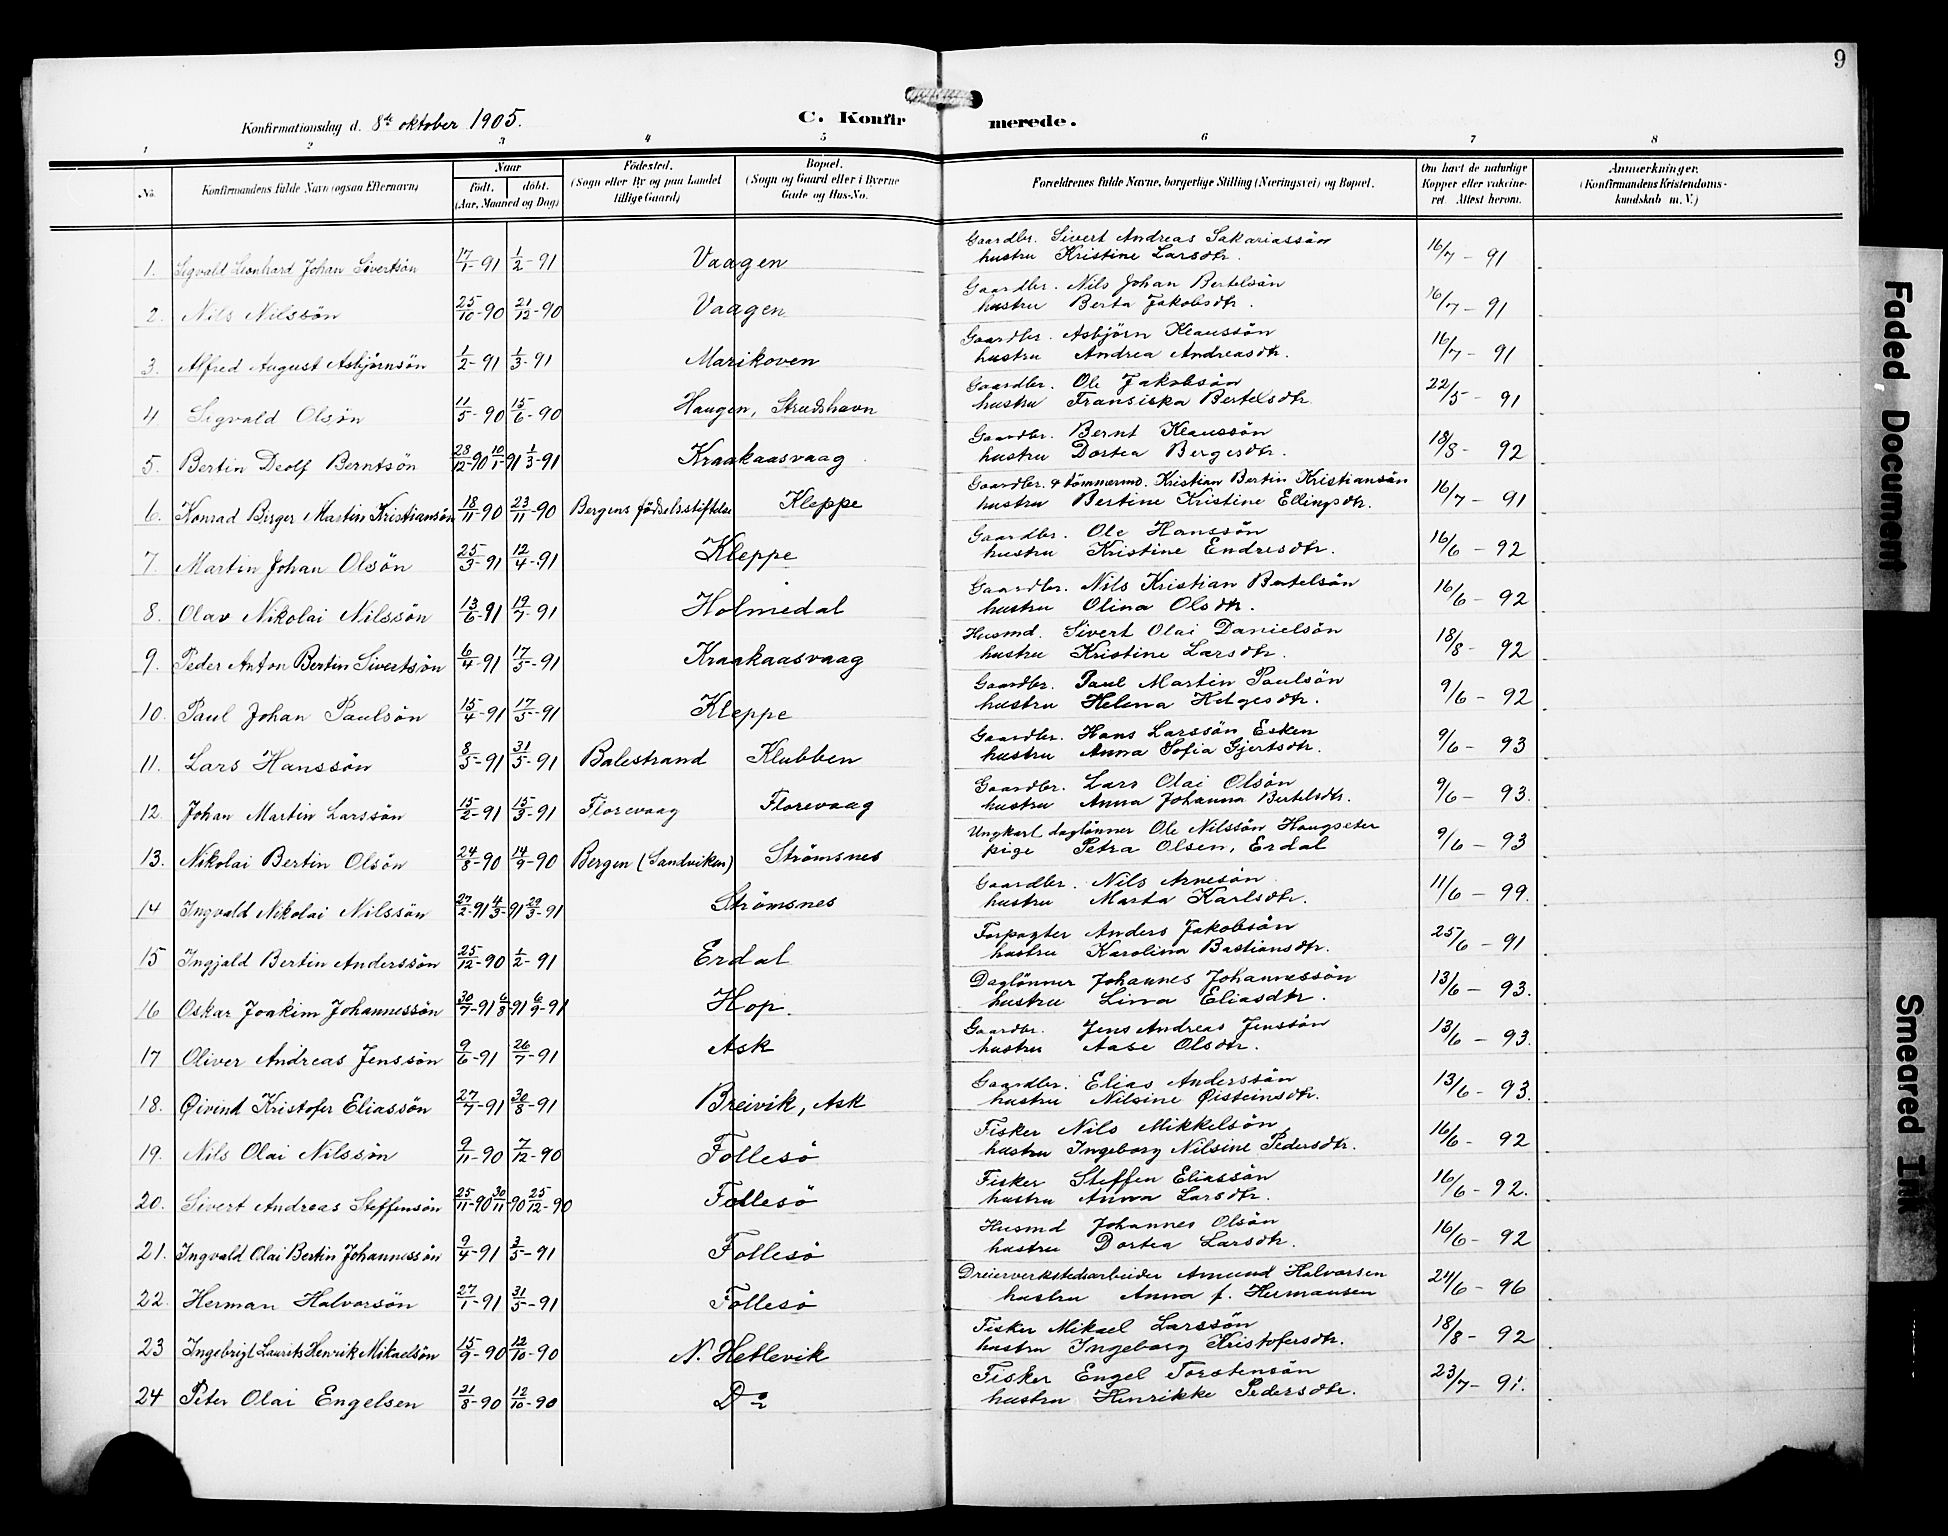 9
Konfirmationsdag d. 8de oktober 1905.
C. Konfirmerede.
1 2 3 4 5 6 7 8
No. Konfirmandens fulde Navn (ogsaa Efternavn) Naar født. døbt. (Aar, Maaned og Dag) Fødested. (Sogn eller By og paa Landet tillige Gaard) Bopæl. (Sogn og Gaard eller i Byerne Gade og Hus-No. Forældrenes fulde Navne, borgerlige Stilling (Næringsvei) og Bopæl. Om havt de naturlige Kopper eller vakcineret. Attest herom. Anmærkninger. (Konfirmandens Kristendomskundskab m. V.)
1. Sigvald Leonhard Johan Sivertsön 17/1-91 1/2-91 Vaagen Gaardbr. Sivert Andreas Sakariassön 16/7-91
hustru Kristine Larsdtr.
2. Nils Nilssön 25/10-90 21/12-90 Vaagen Gaardbr. Nils Johan Bertelsön 16/7-91
hustru Berta Jakobsdtr.
3. Alfred August Asbjörnsön 1/2-91 1/3-91 Marikoven Gaardbr. Asbjörn Klaussön 16/7-91
hustru Andrea Andreasdtr.
4 Sigvald Olsön 11/5-90 15/6-90 Haugen, Strudshavn Gaardbr. Ole Jakobsön 22/5-91
hustru Fransiska Bertelsdtr.
5. Bertin Deolf Berntsön 28/12-90 10/1-91 1/3-91 Kraakaasvaag Gaardbr. Bernt Klaussön 18/8-92
hustru Dortea Bergesdtr.
6. Konrad Birger Martin Kristiansön 18/11-90 23/11-90 Bergens födselsstiftelse Kleppe Gaardbr. & tömmermd. Kristian Bertin Kristiansön 16/7-91
hustru Bertine Kristine Ellingsdtr.
7. Martin Johan Olsön 25/3-91 12/4-91 Kleppe Gaardbr. Ole Hanssön 16/6-92
hustru Kristine Endresdtr.
8. Olav Nikolai Nilssön 13/6-91 19/7-91 Holmedal Gaardbr. Nils Kristian Bertelsön 16/6-92
hustru Olina Olsdtr.
9. Peder Anton Bertin Sivertsön 6/4-91 17/5-91 Kraakaasvaag Husmd. Sivert Olai Danielsön 18/8-92
hustru Kristine Larsdtr.
10. Paul Johan Paulsön 15/4-91 17/5-91 Kleppe Gaardbr. Paul Martin Paulsön 9/6-92
hustru Helena Helgesdtr.
11. Lars Hanssön 8/5-91 31/5-91 Balestrand Klubben Gaardbr. Hans Larssön Esken 9/6-93
hustru Anna Sofia Gjertsdtr.
12. Johan Martin Larssön 15/2-91 15/3-91 Florevaag Florevaag Gaardbr. Lars Olai Olsön 9/6-93.
hustru Anna Johanna Bertelsdtr.
13. Nikolai Bertin Olsön 24/8-90 14/9-90 Bergen (Sandviken) Strömsnes Ungkarl daglönner Ole Nilssön Haugseter 9/6-93
pige Petra Olsen, Erdal
14 Ingvald Nikolai Nilssön 27/2-91 4/3-91 29/3-91 Strömsnes Gaardbr. Nils Arnesön 11/6-99.
hustru Marta Karlsdtr.
15 Ingjald Bertin Anderssön 25/12-90 1/2-91 Erdal Forpagter Anders Jakobsön 25/6-91
hustru Karolina Bastiansdtr.
16 Oskar Joakim Johannessön 30/7-91 6/8-91 6/9-91 Hop. Daglönner Johannes Johannessön 13/6-93.
hustru Lina Eliasdtr.
17 Oliver Andreas Jenssön 9/6-91 26/7-91 Ask Gaardbr. Jens Andreas Jenssön 13/6-93.
hustru Aase Olsdtr.
18. Øivind Kristofer Eliassön 27/7-91 30/8-91 Breivik, Ask Gaardbr. Elias Anderssön 13/6-93.
hustru Nilsine Øisteinsdtr.
19. Nils Olai Nilssön 9/11-90 7/12-90 Follesö Fisker Nils Mikkelsön 16/6-92
hustru Ingeborg Nilsine Pedersdtr.
20. Sivert Andreas Steffensön 25/11-90 30/11-90 25/12-90 Follesö Fisker Steffen Eliassön 16/6-92.
hustru Anna Larsdtr.
21. Ingvald Olai Bertin Johannessön 9/4-91 3/5-91 Follesö Husmd Johannes Olsön 16/6-92
hustru Dortea Larsdtr.
22. Herman Halvorsön 27/1-91 31/5-91 Follesö Dreierverkstedarbeider Amund Halvorsen 24/6-96
hustru Anna f. Hermansen
23 Ingebrigt Laurits Henrik Mikaelsön 15/9-90 12/10-90 N. Hetlevik Fisker Mikael Larssön 18/8-92
hustru Ingeborg Kristofersdtr.
24 Peter Olai Engelsen 21/8-90 12/10-90 Do Fisker Engel Torstensön 23/7-91.
hustru Henrikke Pedersdtr.
Faded Document
Smeared Ink